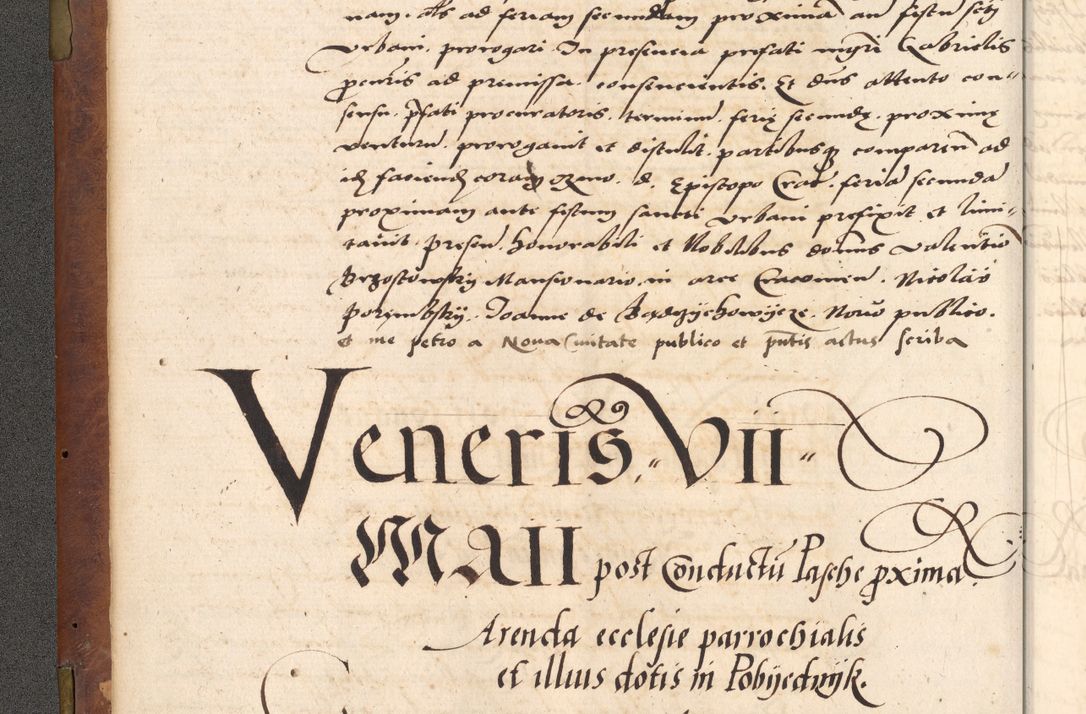 nam. als ad feriam secundam proximā añ festū scti
Vrbani. prorogari. In presencia prefati mgri Gabrielis
procuris ad premissa. consencientis. Et dūs attento con-
sensu. pfati procuratoris. terminū. ferię secundę. proximę
venturū. prorogavit et distulit. partibusq comparen̄ ad
id faciend coram Rmo. d. Episcopo Crac. feria secunda
proximam ante festum sancti Vrbani prefixit et limi-
tavit. presen. honorabili et Nobilibus domīs Valentīo
Brzostowsky Mansionario. in arce Cracovien. Nicolao
Porembsky. Joanne de Bądzychowycze. Notrio publico.
et me petro a Nova Civitate publico et pntis actus scriba
Veneris. VII
MAII post Conductū Pasche pxima.
Arenda ecclesie parrochialis
et illius dotis in Pobyednyk.